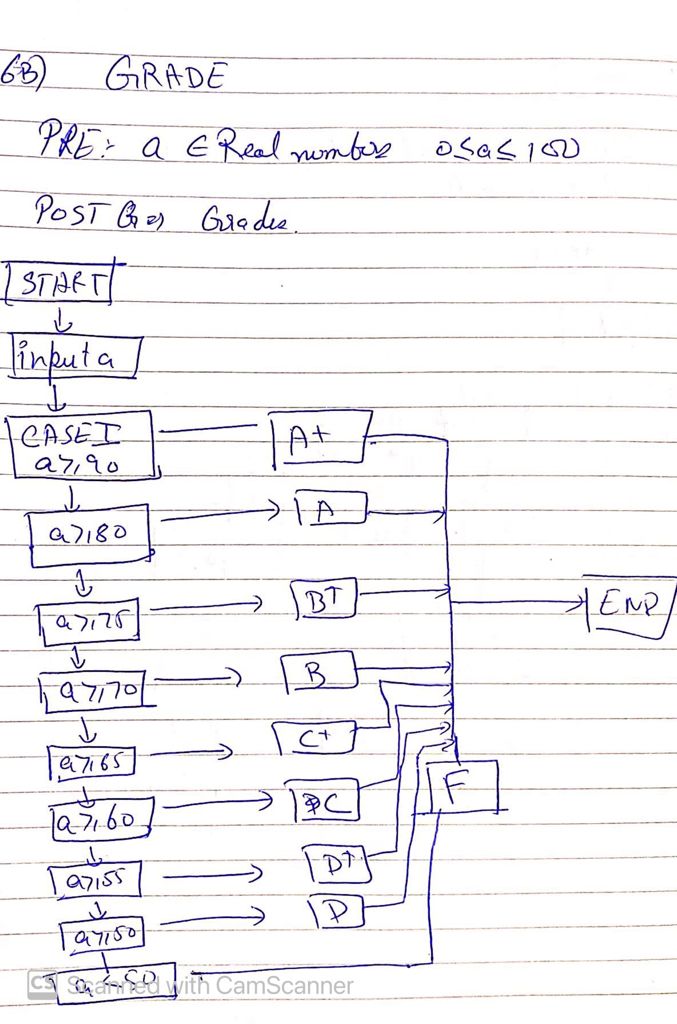 6B) GRADE
PRE:- a ∈ Real numbers 0≤a≤100
POST Grades.
START
input a
CASE I
a≥90
A+
a≥80
A
a≥75
B+
END
a≥70
B
a≥65
C+
F
a≥60
C
a≥55
D+
a≥50
D
a<50
CS Scanned with CamScanner